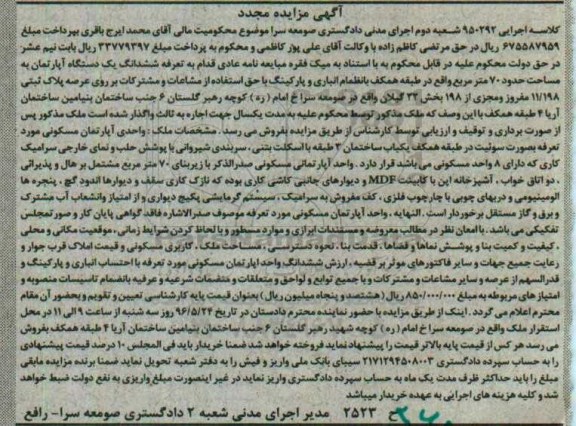 آگهی مزایده مجدد
کلاسه اجرایی ۹۵۰۲۹۲ شعبه دوم اجرای مدنی دادگستری صومعه سرا موضوع محکومیت مالی آقای محمد ایرج باقری بپرداخت مبلغ
۶۷۵۵۸۷۹۵۹ ریال در حق مرتضی کاظم زاده با وکالت آقای علی پور کاظمی و محکوم به پرداخت مبلغ ۳۳۷۷۹۳۹۷ ریال بابت نیم عشر
در حق دولت محکوم علیه در قبال محکوم به با استناد به میک فقره مبایعه نامه عادی اقدام به تعرفه ششدانگ یک دستگاه آپارتمان به
مساحت حدود ۷۰ متر مربع واقع در طبقه همکف بانظمام انباری و پارکینگ با حق استفاده از مشاعات و مشترکات بر روی عرصه پلاک ثبتی
۱۱/۱۹۸ مفروز ومجزی از ۱۹۸ بخش ۲۳ گیلان واقع در صومعه سرا خ امام (ره) کوچه رهبر گلستان ۶ جنب ساختمان بنیامین ساختمان
آریا ۴ طبقه همکف با این وصف که ملک مذکور توسط محکوم علیه به مدت یکسال جهت اجاره به ثالث واگذار شده است ملک مذکور پس
از صورت برداری و توقیف و ارزیابی توسط کارشناس از طریق مزایده بفروش می رسد. مشخصات ملک: واحدی آپارتمان مسکونی مورد
تعرفه بصورت سوئیت در طبقه همکف یکباب ساختمان ۴ طبقه با اسکلت بتنی، سربندی شیروانی با پوشش حلب و نمای خارجی سرامیک
کاری که دارای ۸ واحد مسکونی می باشد قرار دارد. واحد آپارتمانی مسکونی صدرالذکر با زیربنای ۷۰ متر مربع مشتمل بر هال و پذیرائی
، دو اتاق خواب، آشپزخانه اپن با کابینت MDF و دیوارهای جانبی کاشی کاری بوده که نازک کاری سقف و دیوارها اندود گچ، پنجره ها
الومینیومی و دربهای چوبی با چارچوب فلزی، کف مفروش به سرامیک، سیستم گرمایشی پکیج دیواری و از امتیاز وانشعاب آب مشترک
و برق و گاز مستقل برخوردار است. النهایه، واحد آپارتمان مسکونی مورد تعرفه موصوف صدرالاشاره فاقد گواهی پایان کار و صورتمجلس
تفکیکی می باشد. با امعان نظر در مطالب معروضه و مستندات ابرازی و موارد مسطور و با لحاظ کردن شرایط زمانی، موقعیت مکانی و محلی
، کیفیت و کمیت بنا و پوشش نماها و فضاها، قدمت بنا، نحوه دسترسی، مساحت ملک، کاربری مسکونی و قیمت املاک قرب جوار و
رعایت جمیع جهات و سایر فاکتورهای موثر بر قضیه، ارزش ششدانگ واحد اپارتمان مسکونی مورد تعرفه با احتساب انباری و پارکینگ و
قدرالسهم از عرصه و سایر مشاعات و مشترکات و با جمیع توابع و لواحق و متعلقات و منضمات شرعیه و عرفیه بانضمام تاسیسات منصوبه و
امتیاز های مربوطه به مبلغ ۸۵۰/۰۰۰/۰۰۰ ریال (هشتصد و پنجاه میلیون ریال) بعنوان قیمت پایه کارشناسی تعیین و تقویم وبحضور آن مقام
محترم اعلام می گردد. اینک از طریق مزایده با حضور نماینده محترم دادستان در تاریخ ۹۶/۵/۲۴ روز سه شنبه از ساعت ۹ الی ۱۱ در محل
استقرار ملک واقع در صومعه سرا خ امام (ره) کوچه شهید رهبر گلستان ۶ جنب ساختمان بنیامین ساختمان آریا ۴ طبقه همکف بفروش
می رسد هر کس از قیمت پایه بالاتر قیمت را پیشنهاد نماید فروخته خواهد شد ضمنا خریدار باید فی المجلس ۱۰ درصد قیمت پیشنهادی
را به حساب سپرده دادگستری ۲۱۷۱۲۹۴۵۰۸۰۰۳ سیبای بانک ملی واریز و فیش را به دفتر شعبه تحویل نماید ضمنا برنده مزایده مابقی
مبلغ را باید حداکثر ظرف مدت یک ماه به حساب سپرده دادگستری واریز نماید در غیر اینصورت مبلغ واریزی به نفع دولت ضبط خواهد
شد و کلیه هزینه های اجرایی به عهده خریدار میباشد
ح ۲۵۲۳ مدیر اجرای مدنی شعبه ۲ دادگستری صومعه سرا- رافع